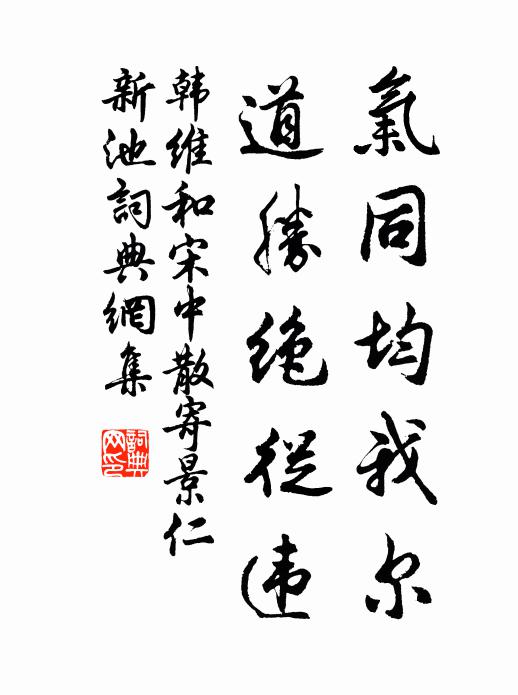 氣同均我尔
道勝絶從违
韩维和宋中散寄景仁
新池詞典網集
詞典网印